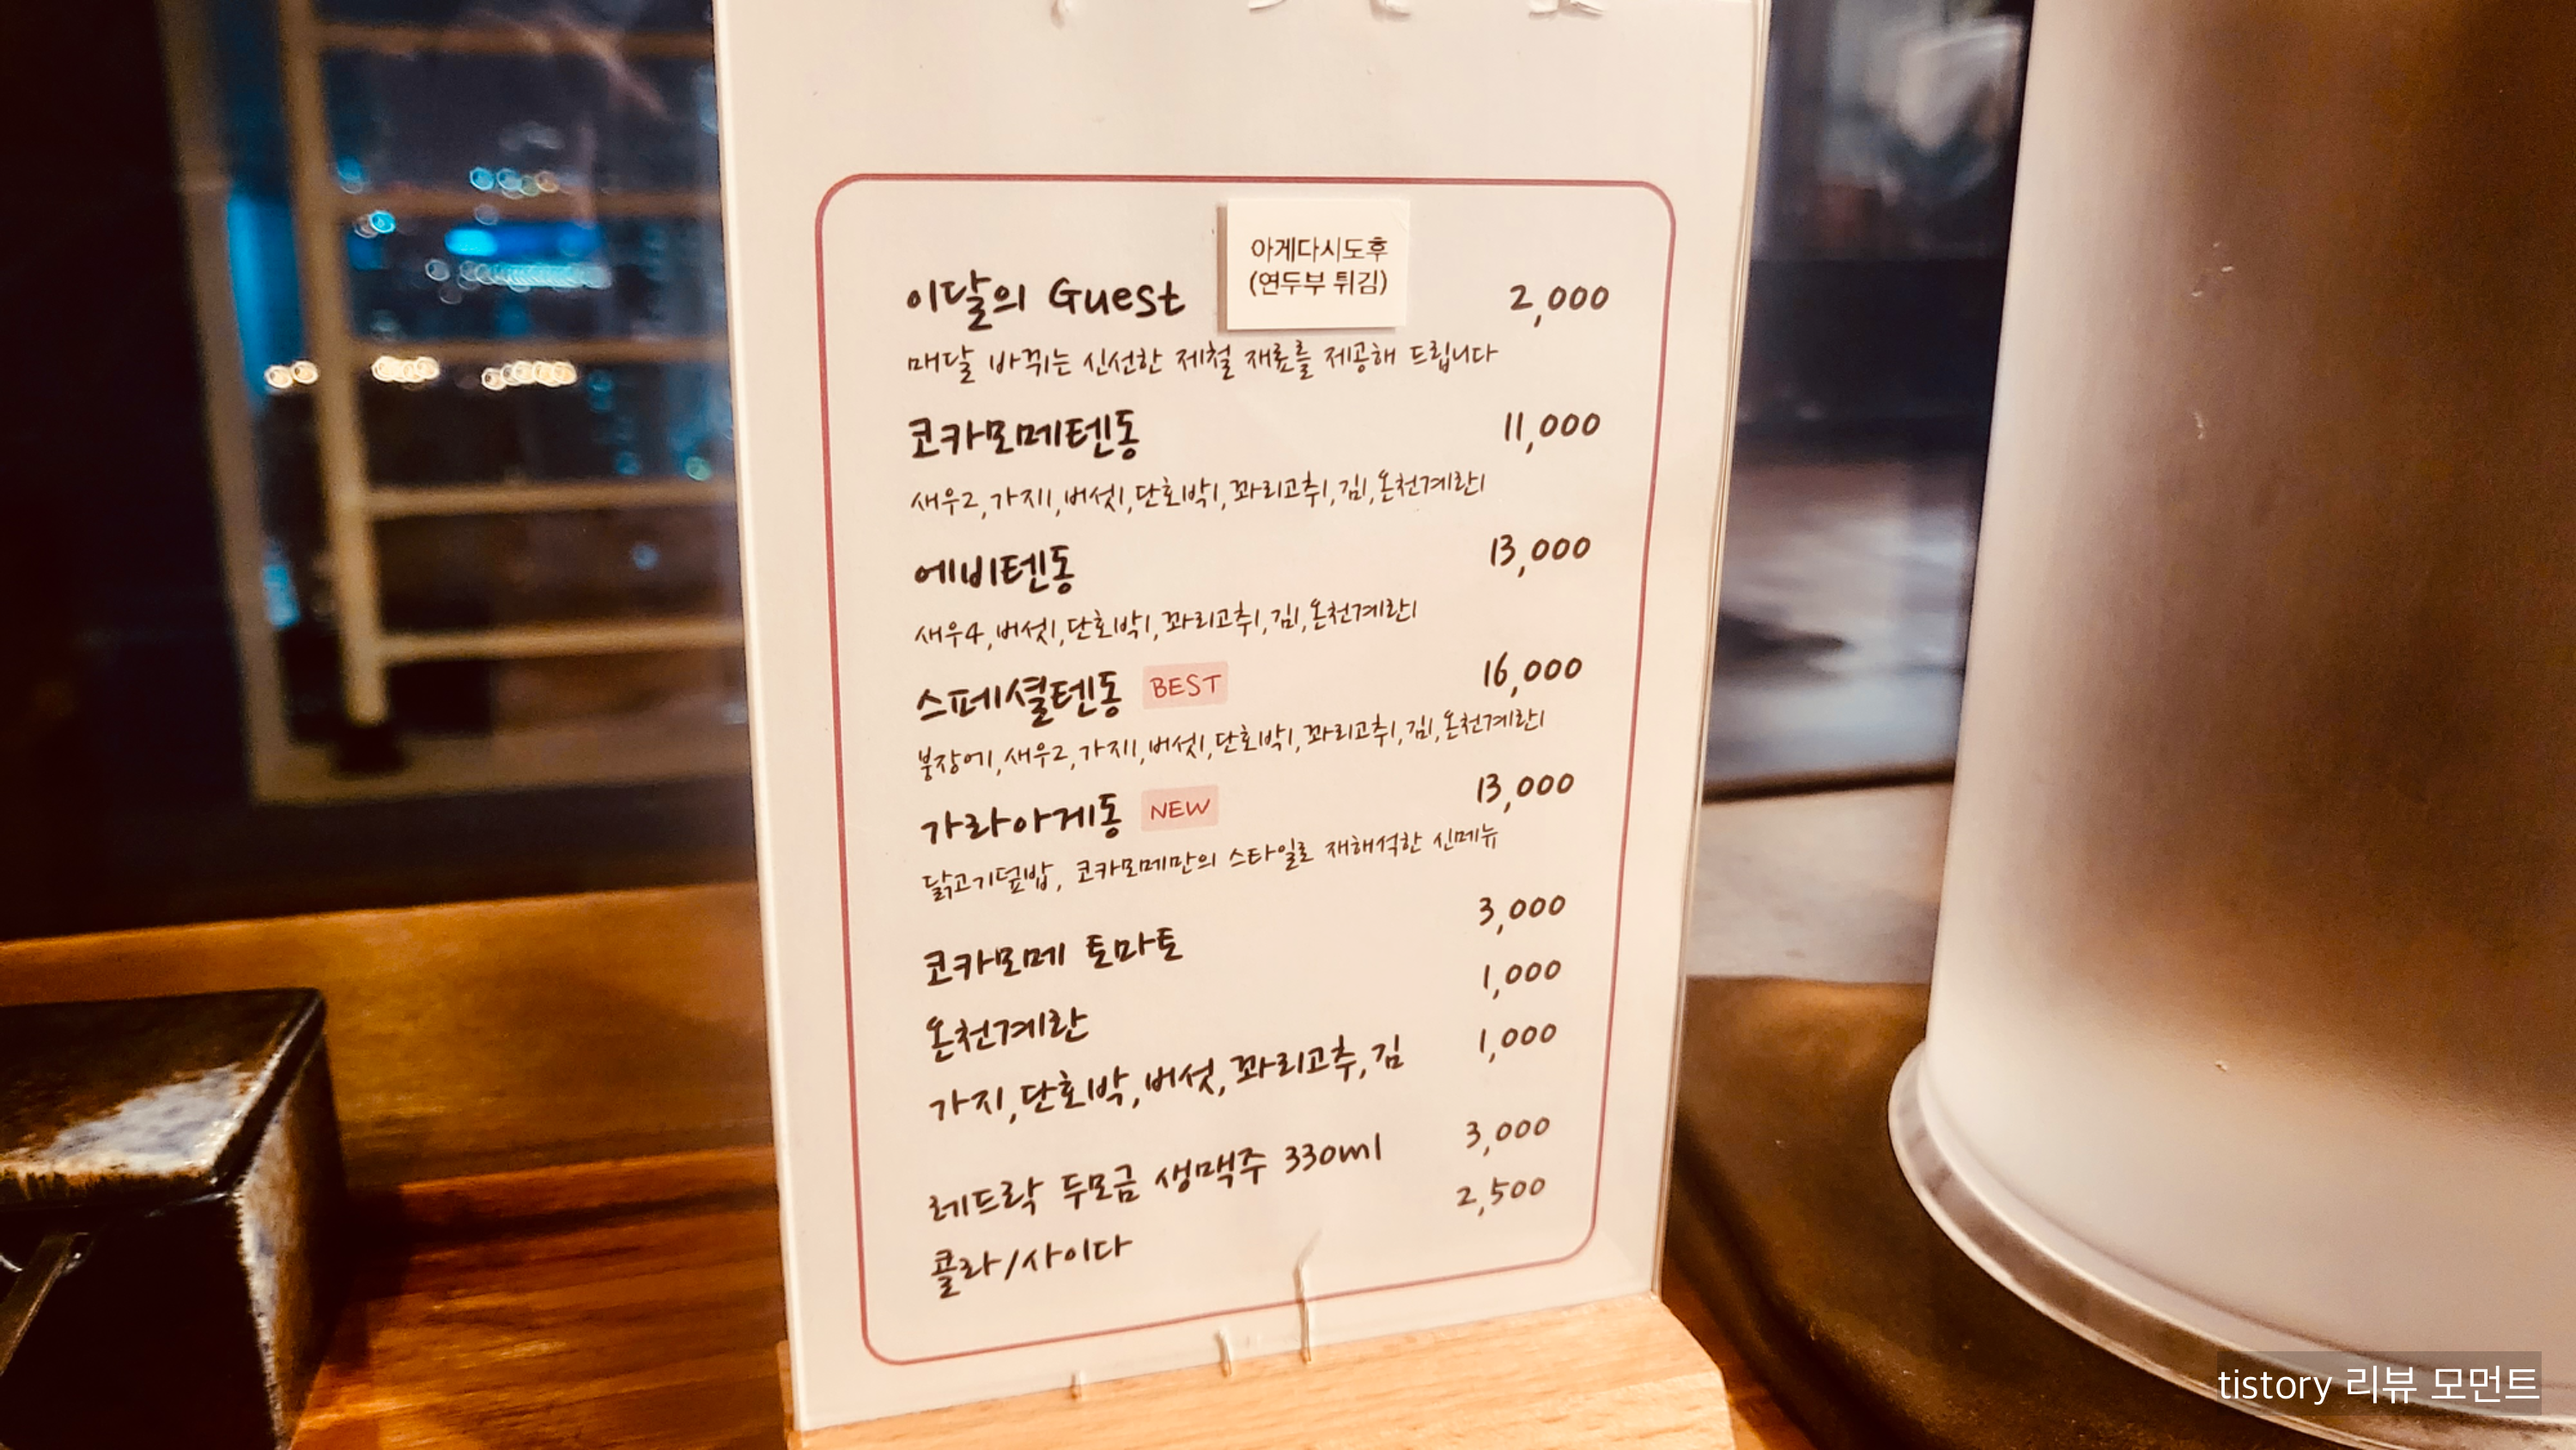 아게다시도후
(연두부 튀김)
이달의 Guest 2,000
매달 바뀌는 신선한 제철 재료를 제공해 드립니다
코카모메텐동 11,000
새우2,가지1,버섯1,단호박1,꽈리고추1,김1,온천계란1
에비텐동 13,000
새우4,버섯1,단호박1,꽈리고추1,김1,온천계란1
스페셜텐동 BEST 16,000
붕장어1,새우2,가지1,버섯1,단호박1,꽈리고추1,김1,온천계란1
가라아게동 NEW 13,000
닭고기덮밥, 코카모메만의 스타일로 재해석한 신메뉴
코카모메 토마토 3,000
온천계란 1,000
가지,단호박,버섯,꽈리고추,김 1,000
레드락 두모금 생맥주 330ml 3,000
콜라/사이다 2,500
tistory 리뷰 모먼트